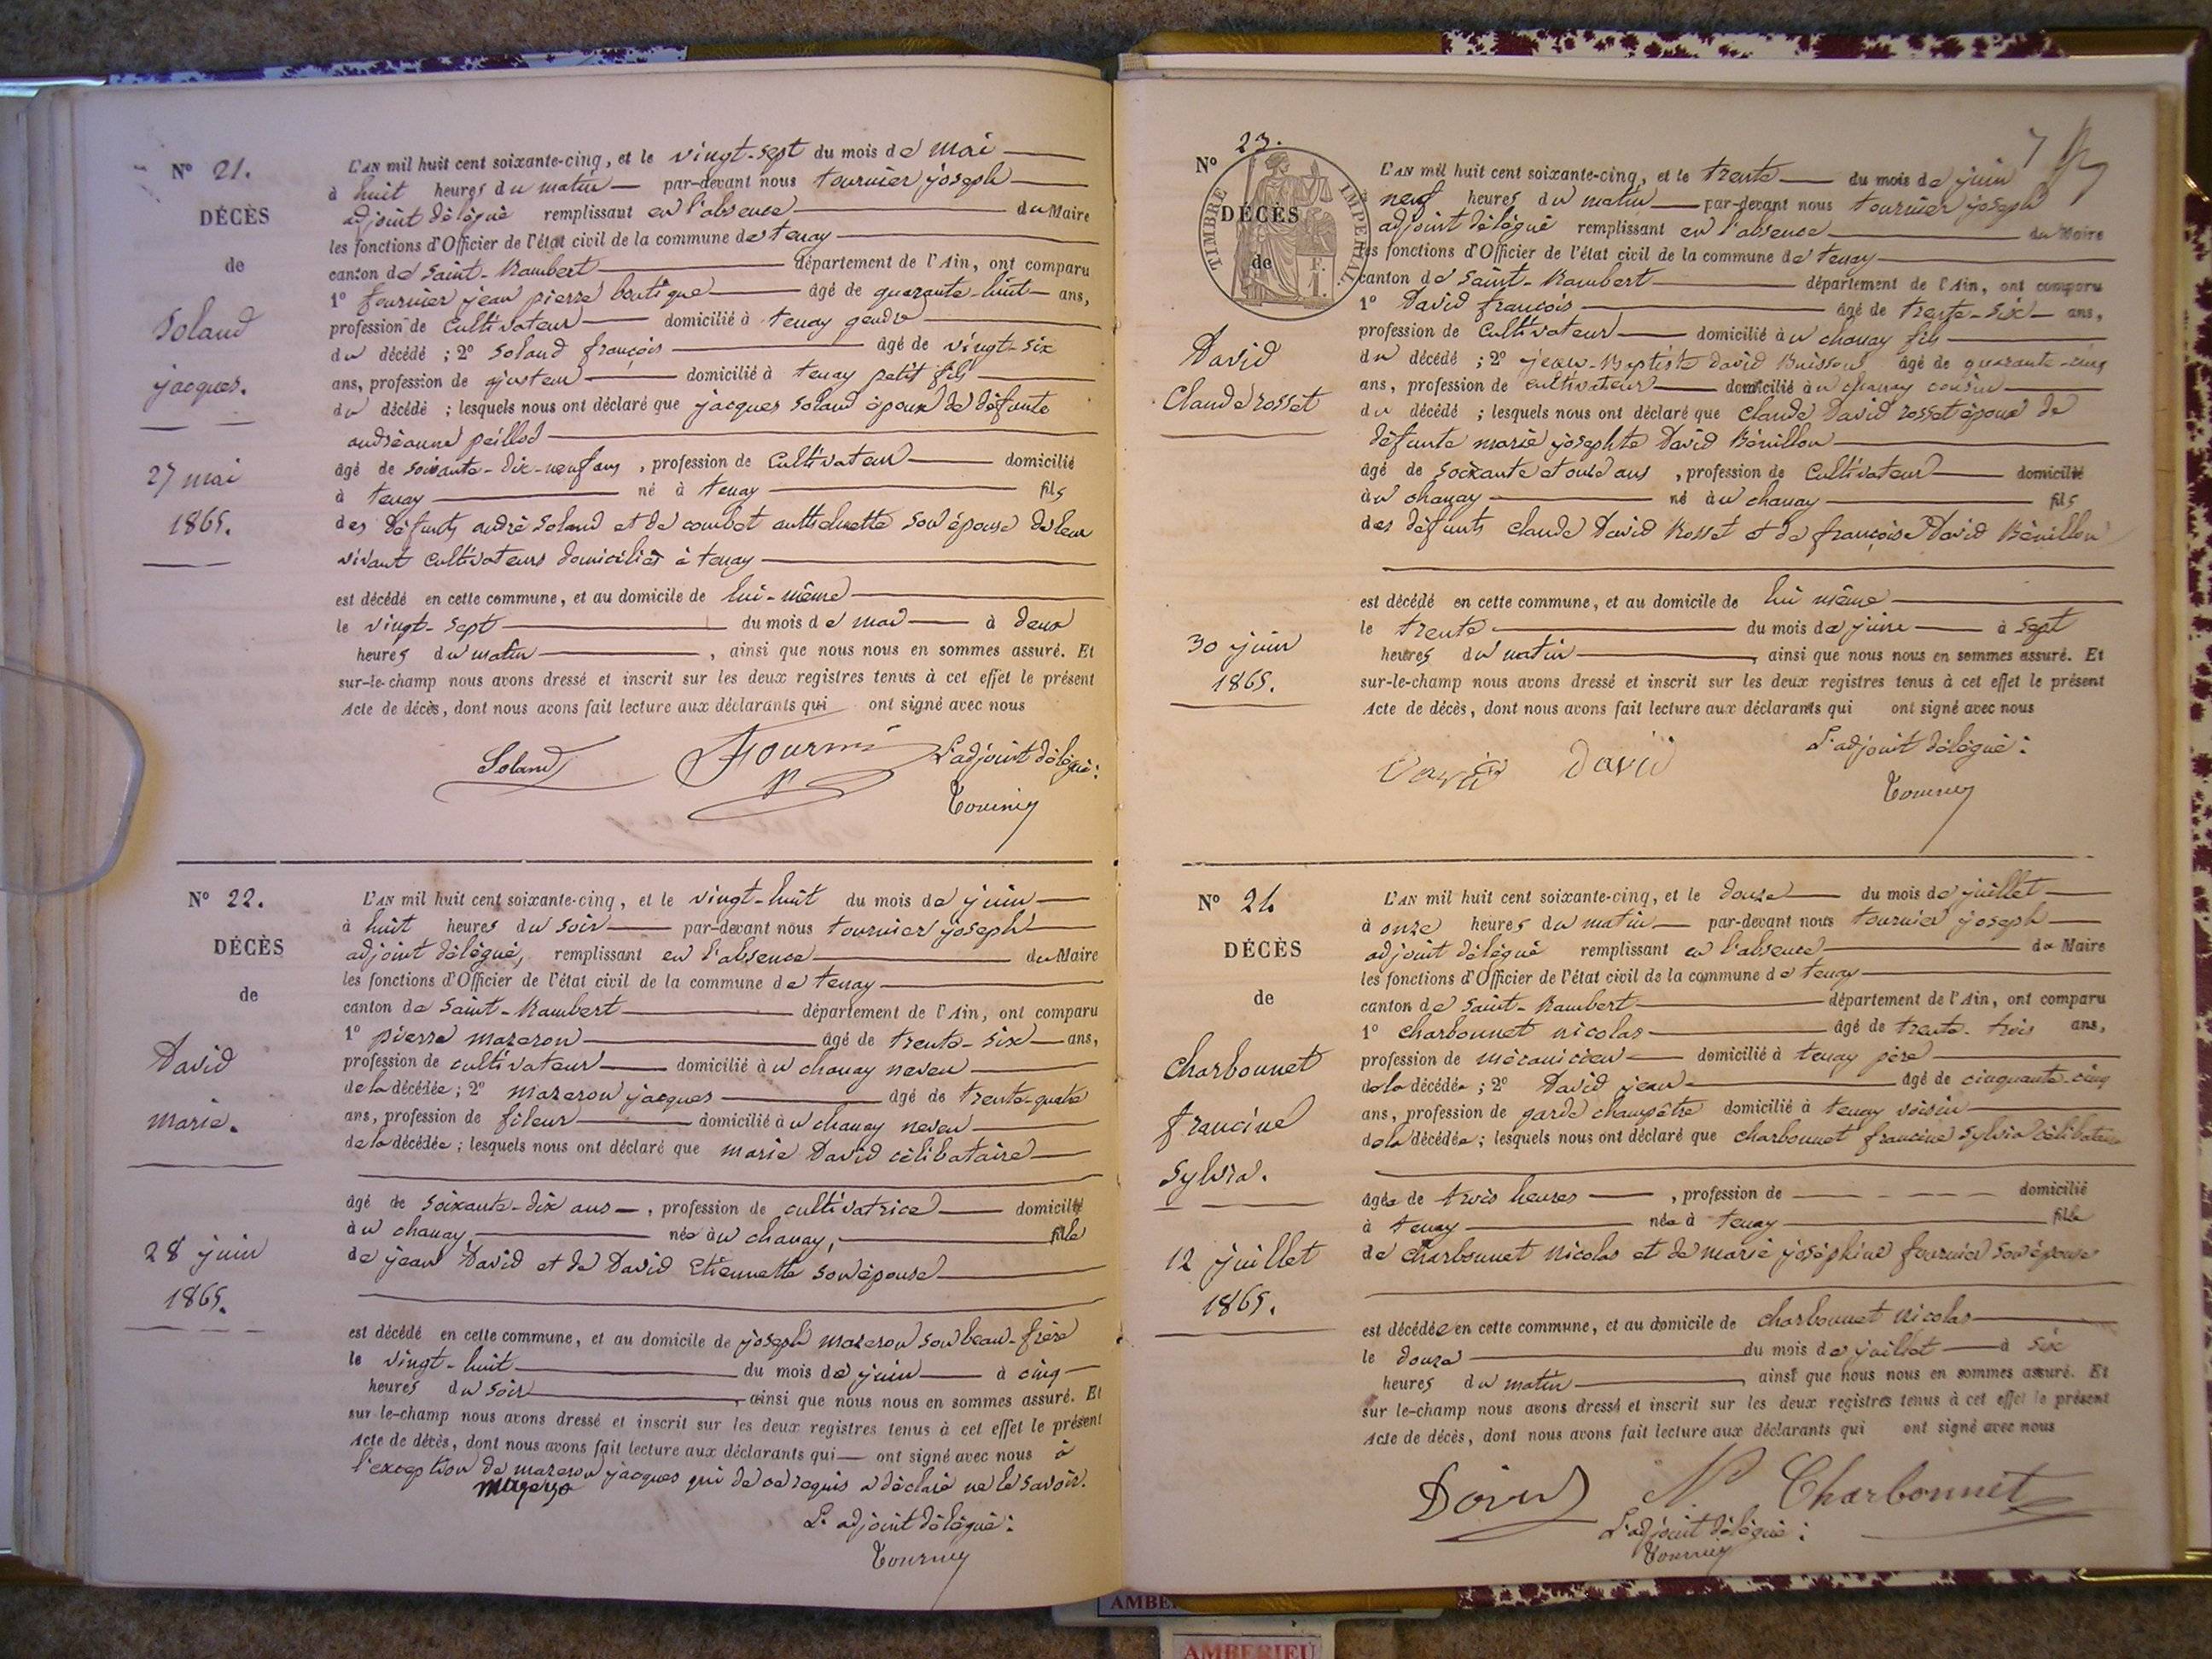 N° 21.
DÉCÈS
de
Soland
jacques.
27 mai
1865.
L'AN mil huit cent soixante-cinq, et le vingt-sept du mois de mai
à huit heures du matin par-devant nous tournier joseph
adjoint délégué remplissant en l'absence du Maire
les fonctions d'Officier de l'état civil de la commune de tenay
canton de Saint-Rambert département de l'Ain, ont comparu
1° fournier jean pierre boutique âgé de quarante-huit ans,
profession de cultivateur domicilié à tenay gendre
du décédé ; 2° Soland françois âgé de vingt-six
ans, profession de ajusteur domicilié à tenay petit fils
du décédé ; lesquels nous ont déclaré que jacques Soland époux de défunte
andréanne peillod
âgé de soixante-dix-neuf ans, profession de Cultivateur domicilié
à tenay né à tenay fils
des défunts andré Soland et de combet anthelmette son épouse de leur
vivant cultivateurs domiciliés à tenay
est décédé en cette commune, et au domicile de lui-même
le vingt-sept du mois de mai à deux
heures du matin, ainsi que nous nous en sommes assuré. Et
sur-le-champ nous avons dressé et inscrit sur les deux registres tenus à cet effet le présent
Acte de décès, dont nous avons fait lecture aux déclarants qui ont signé avec nous
Soland Fournié L'adjoint délégué :
Tournier
N° 22.
DÉCÈS
de
David
marie.
28 juin
1865.
L'AN mil huit cent soixante-cinq, et le vingt-huit du mois de juin
à huit heures du soir par-devant nous tournier joseph
adjoint délégué, remplissant en l'absence du Maire
les fonctions d'Officier de l'état civil de la commune de tenay
canton de Saint-Rambert département de l'Ain, ont comparu
1° pierre mazeron âgé de trente-six ans,
profession de cultivateur domicilié à u chanay neveu
de la décédée ; 2° mazeron jacques âgé de trente-quatre
ans, profession de fileur domicilié à u chanay neveu
de la décédée ; lesquels nous ont déclaré que marie David célibataire
âgé de soixante-dix ans, profession de cultivatrice domicilié
à u chanay, née à u chanay, fille
de jean David et de David Etiennette son épouse
est décédé en cette commune, et au domicile de joseph mazeron son beau-frère
le vingt-huit du mois de juin à cinq
heures du soir, ainsi que nous nous en sommes assuré. Et
sur-le-champ nous avons dressé et inscrit sur les deux registres tenus à cet effet le présent
Acte de décès, dont nous avons fait lecture aux déclarants qui ont signé avec nous à
l'exception de mazeron jacques qui de ce requis a déclaré ne le savoir.
L'adjoint délégué :
Tournier
7
N° 23.
TIMBRE IMPÉRIAL
1 F.
DÉCÈS
de
David
Claude rosset
30 juin
1865.
L'AN mil huit cent soixante-cinq, et le trente du mois de juin
à neuf heures du matin par-devant nous tournier joseph
adjoint délégué remplissant en l'absence du Maire
les fonctions d'Officier de l'état civil de la commune de tenay
canton de Saint-Rambert département de l'Ain, ont comparu
1° David françois âgé de trente-six ans,
profession de Cultivateur domicilié à u chanay fils
du décédé ; 2° jean-Baptiste David Buisson âgé de quarante-cinq
ans, profession de cultivateur domicilié à u chanay cousin
du décédé ; lesquels nous ont déclaré que Claude David rosset époux de
défunte marie josephte David Bénillon
âgé de soixante et onze ans, profession de Cultivateur domicilié
à u chanay né à u chanay fils
des défunts Claude David Rosset et de françoise David Bénillon
est décédé en cette commune, et au domicile de lui même
le trente du mois de juin à sept
heures du matin, ainsi que nous nous en sommes assuré. Et
sur-le-champ nous avons dressé et inscrit sur les deux registres tenus à cet effet le présent
Acte de décès, dont nous avons fait lecture aux déclarants qui ont signé avec nous
David David L'adjoint délégué :
Tournier
N° 24
DÉCÈS
de
Charbonnet
francine
Sylvia.
12 juillet
1865.
L'AN mil huit cent soixante-cinq, et le douze du mois de juillet
à onze heures du matin par-devant nous tournier joseph
adjoint délégué remplissant en l'absence du Maire
les fonctions d'Officier de l'état civil de la commune de tenay
canton de Saint-Rambert département de l'Ain, ont comparu
1° Charbonnet nicolas âgé de trente-trois ans,
profession de mécanicien domicilié à tenay père
de la décédée ; 2° David jean âgé de cinquante-cinq
ans, profession de garde champêtre domicilié à tenay voisin
de la décédée ; lesquels nous ont déclaré que charbonnet francine Sylvia célibataire
âgée de trois heures, profession de domicilié
à tenay née à tenay fille
de Charbonnet nicolas et de marie joséphine fournier son épouse
est décédée en cette commune, et au domicile de charbonnet nicolas
le douze du mois de juillet à six
heures du matin, ainsi que nous nous en sommes assuré. Et
sur le-champ nous avons dressé et inscrit sur les deux registres tenus à cet effet le présent
Acte de décès, dont nous avons fait lecture aux déclarants qui ont signé avec nous
David N Charbonnet
L'adjoint délégué :
Tournier
AMBE
AMBERIEU